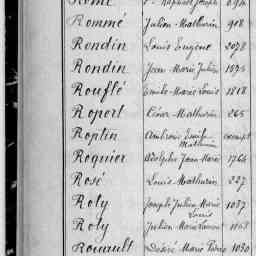 Rommé Julien Mathurin 908
Rondin Louis Eugène 2078
Rondin Jean Marie Julien 1575
Rouflé Emile Marie Louis 1818
Ropert César Mathurin 265
Roptin Ambroise Emile Mathurin exempt
Roquier Adolphe Jean Marie 1764
Rosé Louis Mathurin 227
Roty Joseph Julien Marie Louis 1087
Roty Julien Marie
Rouault Désiré Marie Pierre 1030